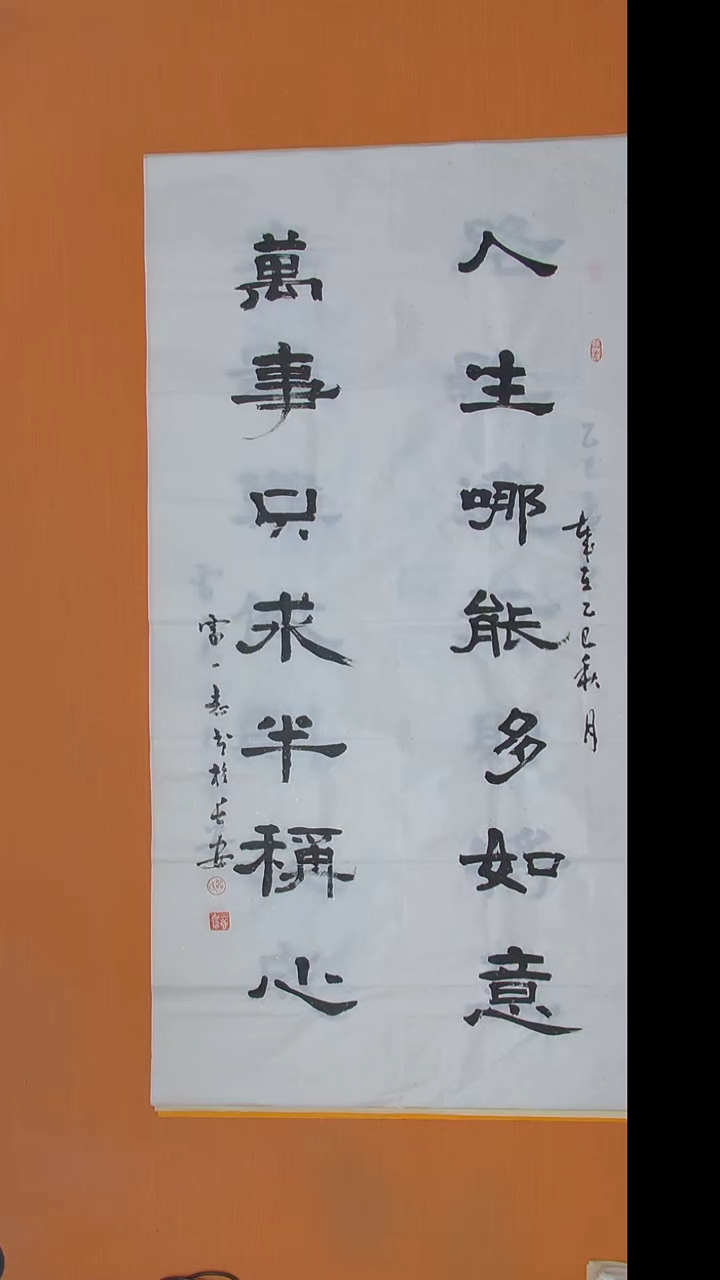 人生哪能多如意
萬事只求半稱心
歲在乙巳秋月
雷一春书於长安